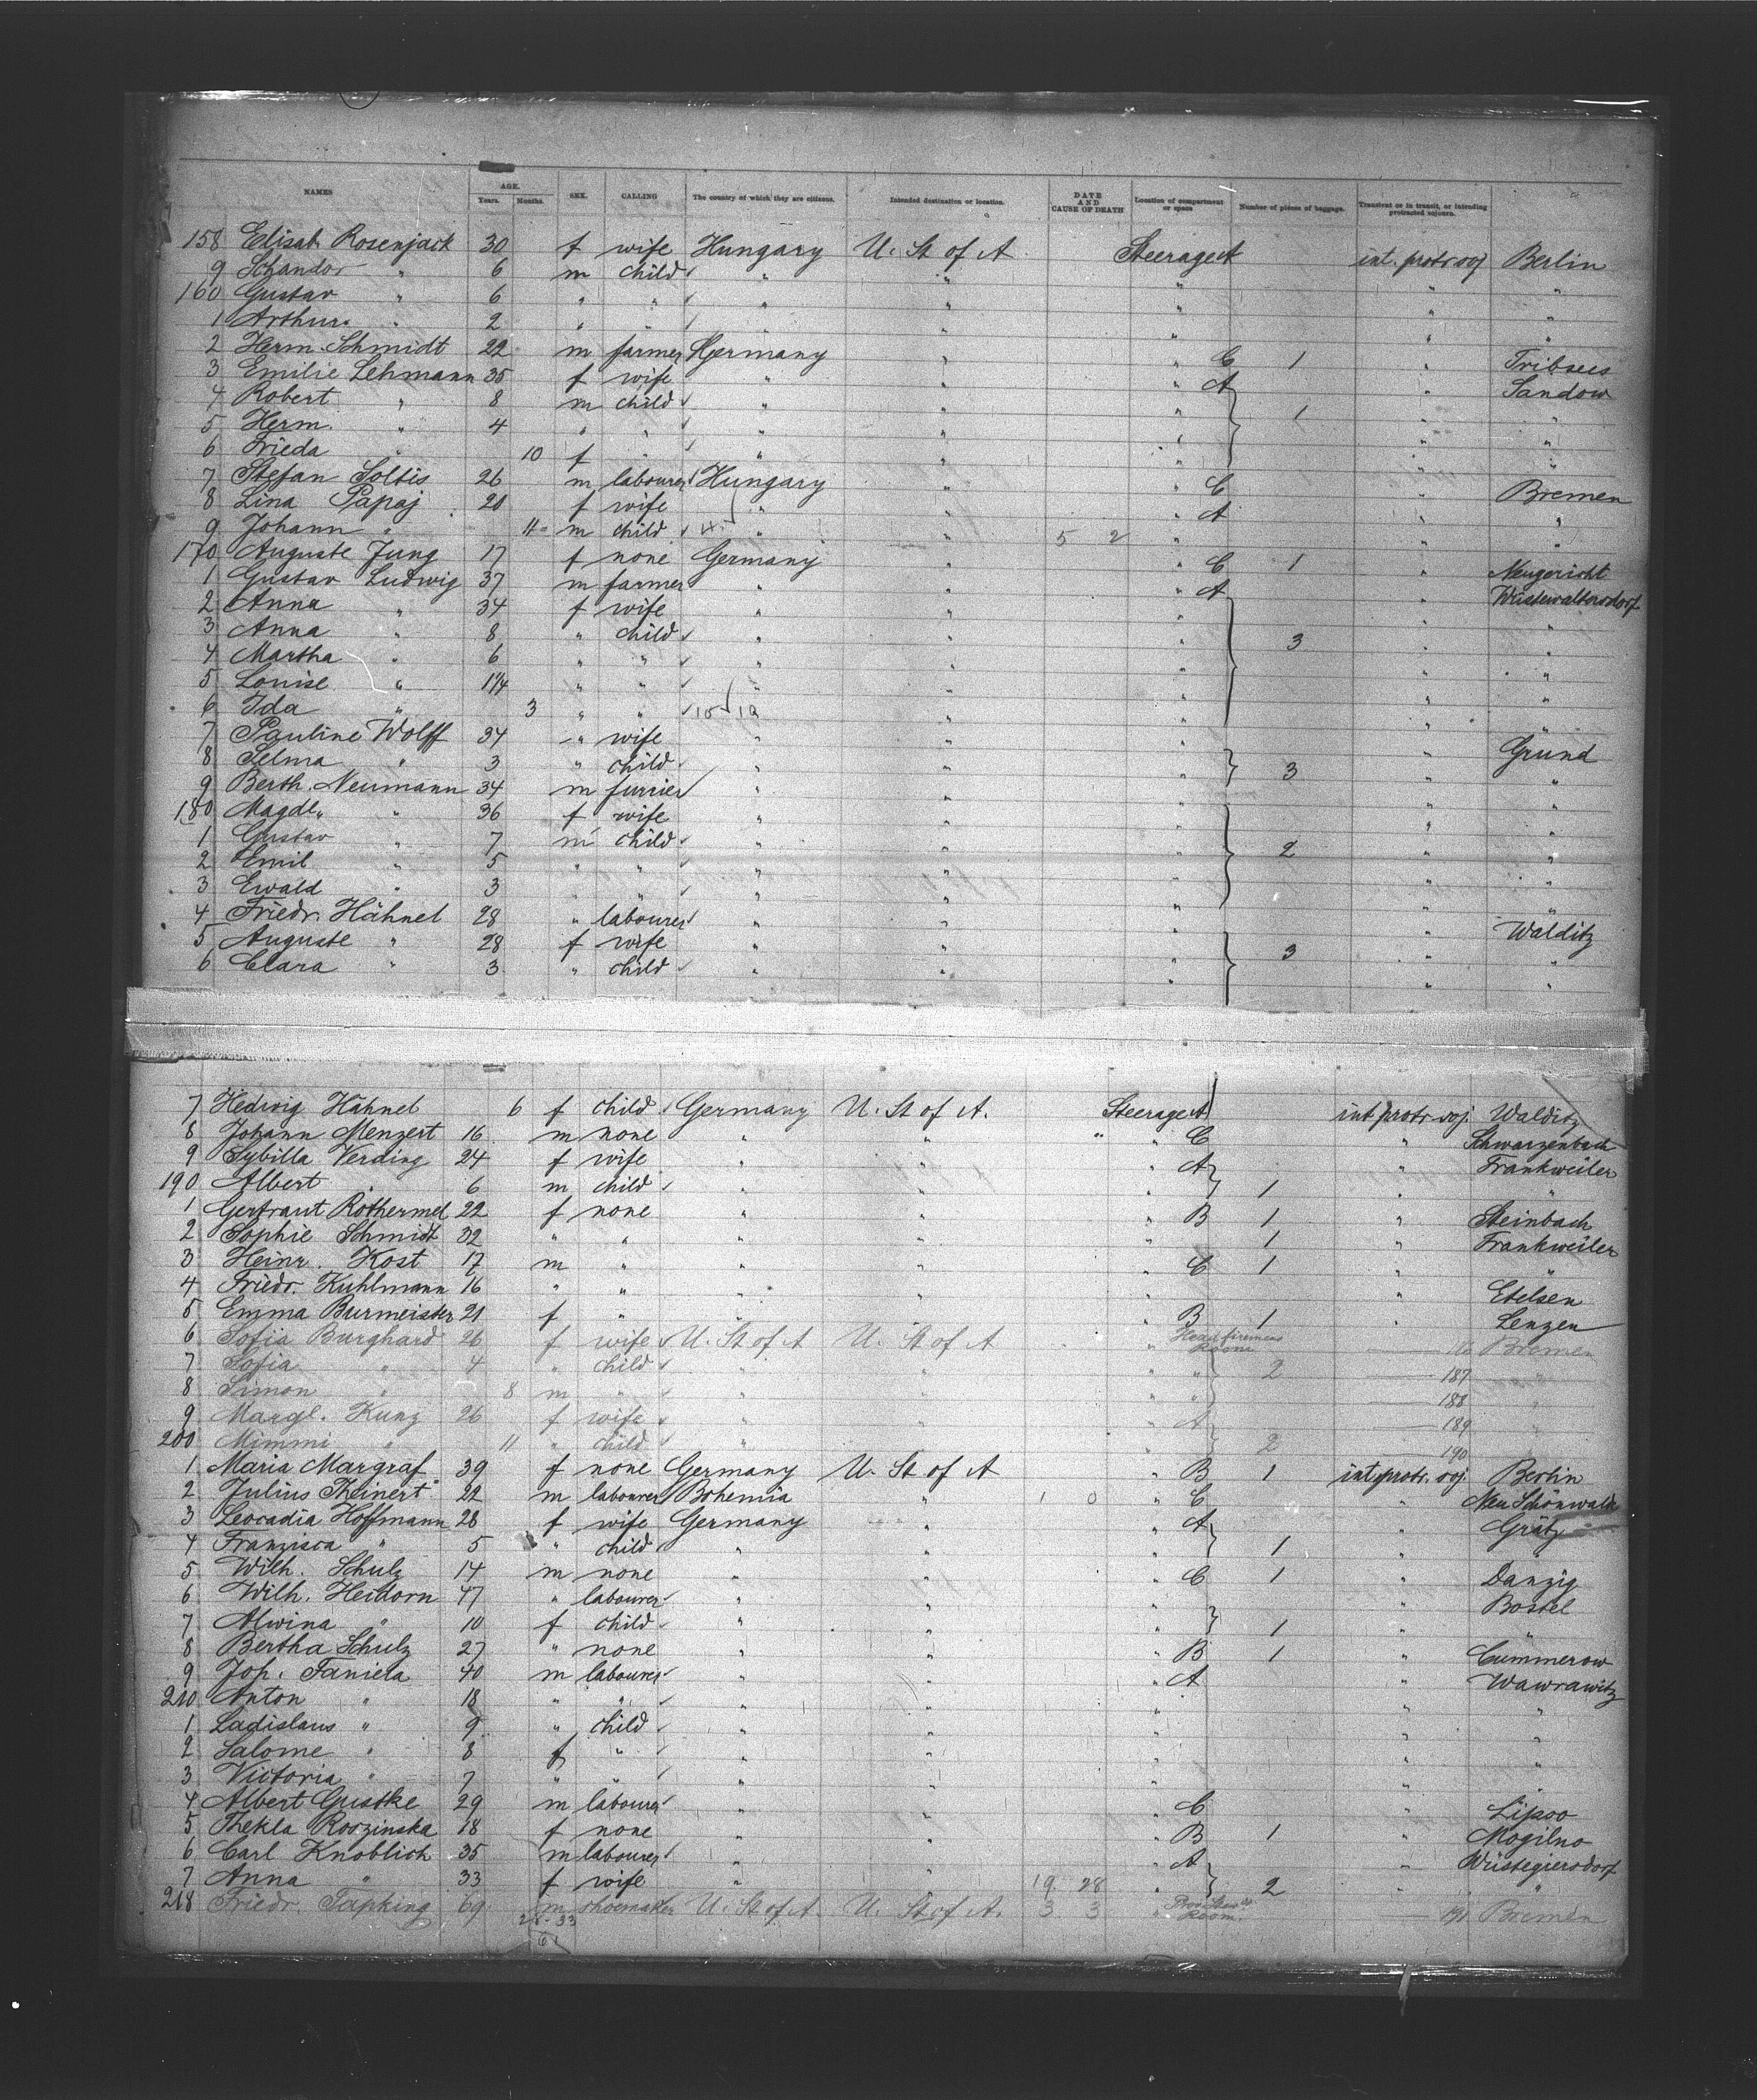 NAMES AGE. SEX. CALLING The country of which they are citizens. Intended destination or location. DATE AND CAUSE OF DEATH Location of compartment or space Number of pieces of baggage. Transient or in transit, or intending protracted sojourn.
Years. Months.
158 Elisab. Rosenjack 30 f wife Hungary U. St of A. Steerage A int. protr. soj Berlin
9 Schandor " 6 m child " " " " "
160 Gustav " 6 " " " " " " "
1 Arthur " 2 " " " " " " "
2 Herm. Schmidt 22 m farmer Germany " " C 1 " Tribsees
3 Emilie Lehmann 35 f wife " " " A " Sandow
4 Robert " 8 m child " " " 1 " "
5 Herm. " 4 " " " " " " "
6 Frieda " 10 f " " " " " "
7 Stefan Soltis 26 m labourer Hungary " " C " Bremen
8 Lina Papaj 20 f wife " " " A " "
9 Johann " 11 m child " " 5 2 " " "
170 Auguste Jung 17 f none Germany " " C 1 " Neugericht
1 Gustav Ludwig 37 m farmer " " " A " Wüstewaltersdorf
2 Anna " 34 f wife " " " " "
3 Anna " 8 " child " " " 3 " "
4 Martha " 6 " " " " " " "
5 Louise " 1 1/4 " " " " " " "
6 Ida " 3 " " " " " " "
7 Pauline Wolff 34 " wife " " " " Grund
8 Selma " 3 " child " " " 3 " "
9 Berth. Neumann 34 m furrier " " " " "
180 Magdl. " 36 f wife " " " " "
1 Gustav " 7 m child " " " 2 " "
2 Emil " 5 " " " " " " "
3 Ewald " 3 " " " " " " "
4 Friedr. Hähnel 28 " labourer " " " " Walditz
5 Auguste " 28 f wife " " " 3 " "
6 Clara " 3 " child " " " " "
7 Hedwig Hähnel 6 f child Germany U. St of A. Steerage A int. protr. soj. Walditz
8 Johann Menzert 16 m none " " " C " Schwarzenbach
9 Sybilla Verding 24 f wife " " " A " Frankweiler
190 Albert " 6 m child " " " 1 " "
1 Gertraut Rothermel 22 f none " " " B 1 " Steinbach
2 Sophie Schmidt 32 " " " " " 1 " Frankweiler
3 Heinr. Kost 17 m " " " " C 1 " "
4 Friedr. Kuhlmann 16 " " " " " " Etelsen
5 Emma Burmeister 21 f " " " " B 1 " Lenzen
6 Sofia Burghard 26 f wife U. St of A U. St of A " Head firemens Room Bremen
7 Sofia " 4 " child " " " " 2 187 "
8 Simon " 8 m " " " " " 188 "
9 Margl. Kunz 26 f wife " " " A 189 "
200 Mimmi " 11 " child " " " 2 190 "
1 Maria Margraf 39 f none Germany U. St of A " B 1 int. protr. soj. Berlin
2 Julius Theinert 22 m labourer Bohemia " 1 0 " C " Neu Schönwalde
3 Leocadia Hoffmann 28 f wife Germany " " A " Grätz
4 Franzisca " 5 " child " " " 1 " "
5 Wilh. Schulz 14 m none " " " C 1 " Danzig
6 Wilh. Heidorn 47 " labourer " " " " Bostel
7 Alwina " 10 f child " " " 1 " "
8 Bertha Schulz 27 " none " " " B 1 " Cummerow
9 Joh. Taniela 40 m labourer " " " A " Wawrawitz
210 Anton " 18 " " " " " " "
1 Ladislaus " 9 " child " " " " "
2 Salome " 8 f " " " " " "
3 Victoria " 7 " " " " " " "
4 Albert Gustke 29 m labourer " " " C " Lipoo
5 Thekla Roszinska 18 f none " " " B 1 " Mogilno
6 Carl Knoblich 35 m labourer " " " A " Wüstegiersdorf
7 Anna " 33 f wife " " 19 28 " 2 " "
218 Friedr. Tapking 69 m shoemaker U. St of A. U. St of A. 3 3 " Room. 191 Bremen